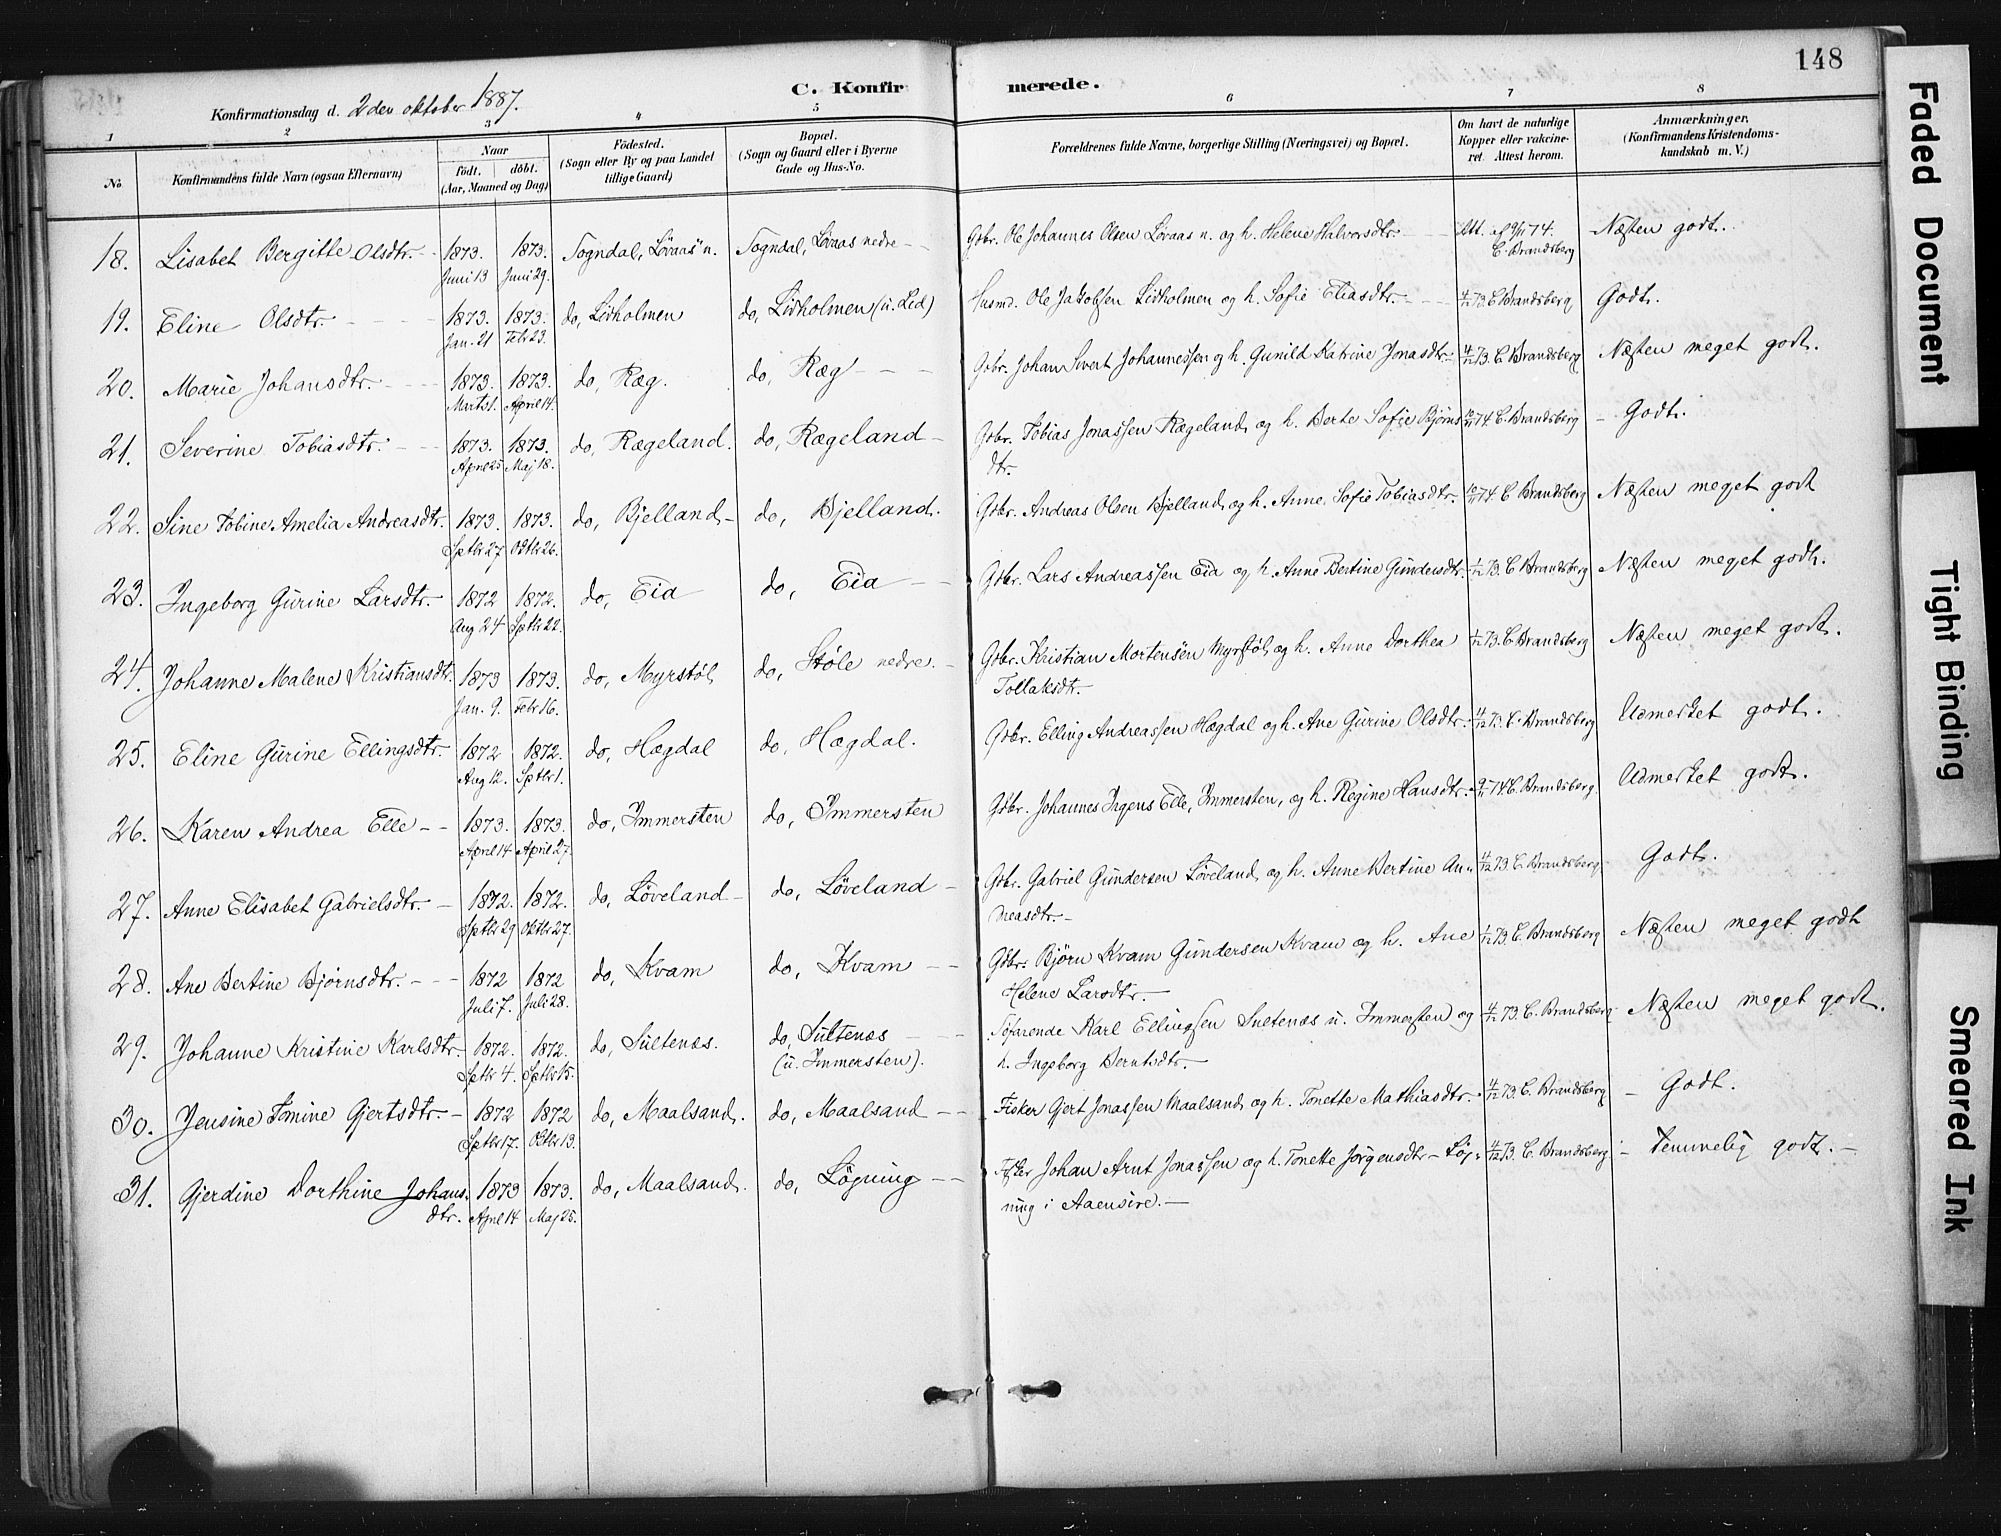 148
C. Konfirmerede.
Konfirmationsdag d. 2den oktober 1887.
1 2 3 4 5 6 7 8
No
Konfirmandens fulde Navn (ogsaa Efternavn)
Naar
födt. döbt.
(Aar, Maaned og Dag)
Födested.
(Sogn eller By og paa Landet
tillige Gaard)
Bopæl.
(Sogn og Gaard eller i Byerne
Gade og Hus-No.
Forældrenes fulde Navne, borgerlige Stilling (Næringsvei) og Bopæl.
Om havt de naturlige
Kopper eller vakcine-
ret. Attest herom.
Anmærkninger.
(Konfirmandens Kristendoms-
kundskab m. V.)
18. Lisabet Bergitte Olsdtr. 1873. Juni 13 1873. Juni 29. Sogndal, Løvaas n. Sogndal, Løvaas nedre Gbr. Ole Johannes Olsen Løvaas n. og h. Helene Halvorsdtr. Att. C. Brandsberg Næsten godt.
19. Eline Olsdtr. 1873. Jan. 21 1873. Febr 23. do, Lidholmen do, Lidholmen (u. Lid) Husmd. Ole Jakobsen Lidholmen og h. Sofie Eliasdtr. 4/12 73. C Brandsberg Godt.
20. Marie Johansdtr. 1873. Marts 1. 1873. April 14. do, Ræg. do, Ræg Gbr. Johan Sivert Johannessen og h. Gunild Katrine Jonasdtr. 4/12 73. C. Brandsberg Næsten meget godt.
21. Severine Tobiasdtr. 1873. April 25 1873. Maj 18. do, Rægeland. do, Rægeland Gbr. Tobias Jonassen Rægeland og h. Berte Sofie Bjørns
dtr. 10/11 74 C. Brandsberg Godt.
22. Sine Tobine Amelia Andreasdtr. 1873. Sptbr 27 1873. Oktbr 26. do, Bjelland do, Bjelland. Gbr. Andreas Olsen Bjelland og h. Anne Sofie Tobiasdtr. 10/11 74 C Brandsberg Næsten meget godt
23. Ingeborg Gurine Larsdtr. 1872 Aug 24 1872. Sptbr 22. do, Eia do, Eia Gbr. Lars Andreassen Eia og h. Anne Bertine Gundersdtr. 1/12 73. C Brandsberg Næsten meget godt.
24. Johanne Malene Kristiansdtr. 1873 Jan. 9. 1873. Febr 16. do, Myrstøl do, Støle nedre. Gbr. Kristian Mortensen Myrstøl og h. Anne Dorthea
Tollaksdtr. 1/12 73. C Brandsberg Næsten meget godt.
25. Eline Gurine Ellingsdtr. 1872 Aug 12. 1872. Sptbr 1. do, Hægdal do, Hægdal. Gbr. Elling Andreassen Hægdal og h. Ane Gurine Olsdtr. 4/12 73. C. Brandsberg Udmerket godt.
26. Karen Andrea Elle 1873. April 14 1873. April 27. do, Immersten do, Immersten Gbr. Johannes Irgens Elle, Immersten, og h. Regine Hansdtr. 9/11 74 C. Brandsberg. Udmerket godt.
27. Anne Elisabet Gabrielsdtr. 1872. Sptbr 29 1872. Oktbr 27. do, Løveland do, Løveland Gbr. Gabriel Gundersen Løveland og h. Anne Bertine An-
neasdtr. 4/12 73. C. Brandsberg. Godt.
28. Ane Bertine Bjørnsdtr. 1872 Juli 7. 1872 Juli 28. do, Kvam do, Kvam Gbr. Bjørn Kvam Gundersen Kvam og h. Ane
Helene Larsdtr. 1/12 73. C. Brandsberg Næsten meget godt
29. Johanne Kristine Karlsdtr. 1872. Sptbr 4. 1872. Sptbr 15. do, Sultenæs. do, Sultenæs
(u. Immersten). Søfarende Karl Ellingsen Sultenæs u. Immersten og
h. Ingeborg Berntsdtr. 4/12 73. C. Brandsberg Næsten meget godt.
30. Jensine Tomine Gjertsdtr. 1872 Sptbr 17. 1872 Oktbr 13. do, Maalsand. do, Maalsand Fisker Gjert Jonassen Maalsand og h. Tonette Mathiasdtr. 4/12 73. C. Brandsberg Godt.
31. Gjerdine Dorthine Johans
dtr. 1873 April 14 1873. Maj 25. do, Maalsand. do, Løgning Johan Arnt Jonassen og h. Tonette Jørgensdtr Løg-
ning i Aaensire. 4/12 73. C. Brandsberg Temmelig godt.
Faded Document
Tight Binding
Smeared Ink